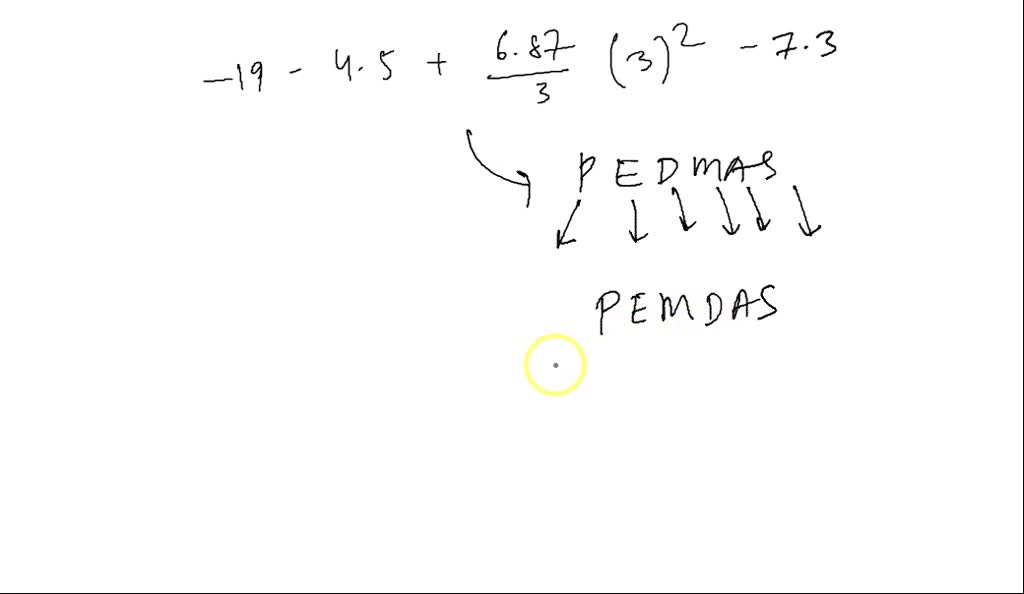 -19 - 4.5 + 6.87/3 (3)² - 7.3
PEDMAS
PEMDAS